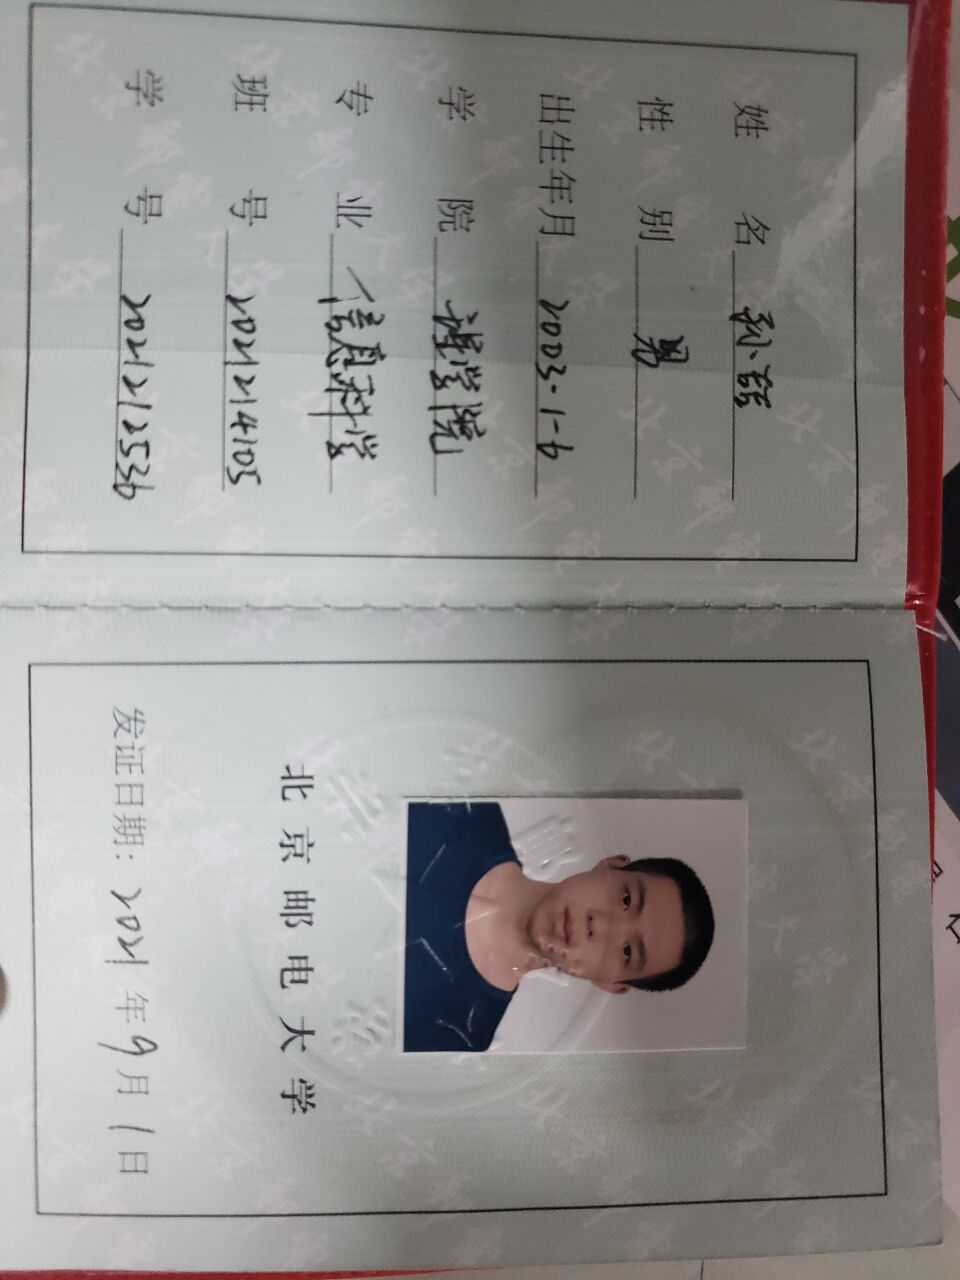 姓 名 孙
性 别 男
出生年月 2003.1-6
学 院 理学院
专 业 信息科学
班 号 2021214105
学 号 2021212536
北京邮电大学
发证日期：2021年9月1日